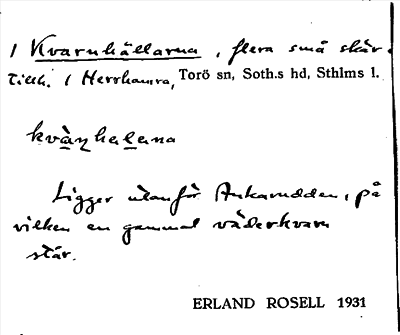 1 Kvarnhällarna, flera små skär
tillh. 1 Herrhamra, Torö sn, Soth.s hd, Sthlms l.
Ligger utanför Ankarudden, på
vilken en gammal väderkvarn
står.
ERLAND ROSELL 1931